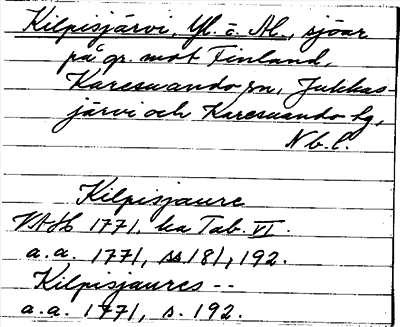 Kilpisjärvi, Yl. o. Al., sjöar
på gr. mot Finland,
Karesuando sn, Jukkas-
järvi och Karesuando lg,
Nb. l.
Kilpisjaure
VAH 1771, ka Tab. VI.
a.a. 1771, ss. 181, 192.
Kilpisjaures --
a.a. 1771, s. 192.